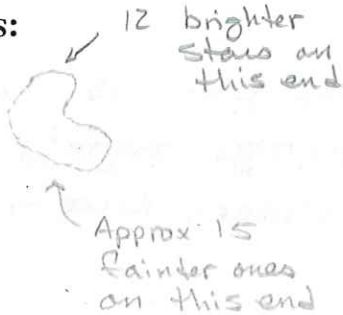 s:
12 brighter
stars on
this end
Approx 15
fainter ones
on this end